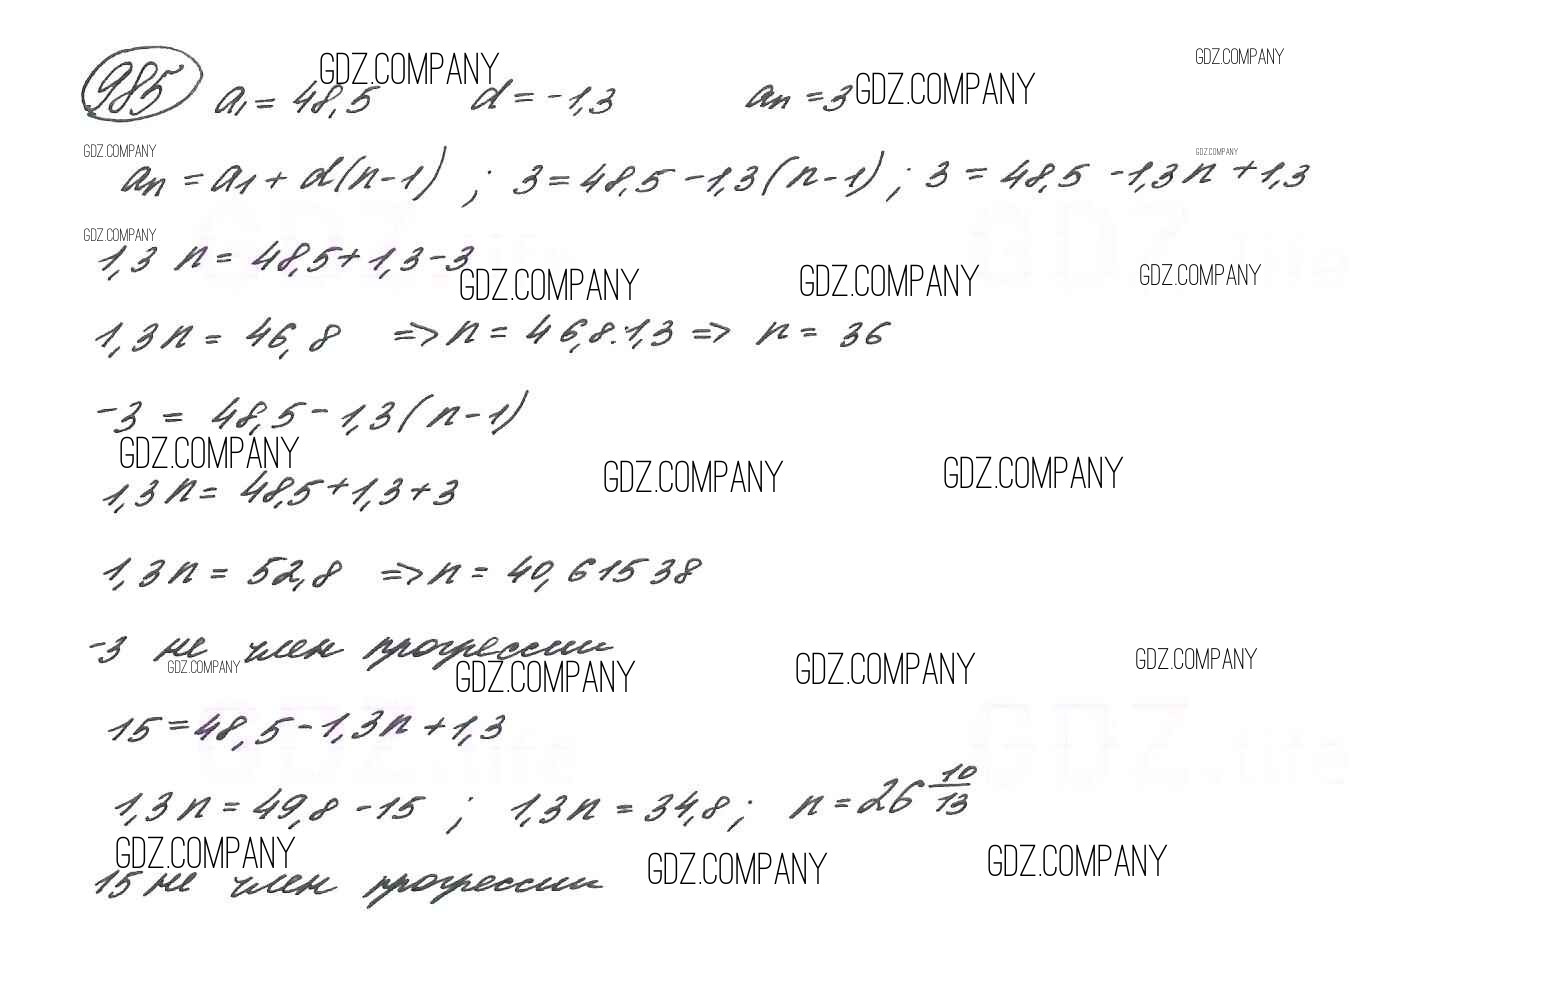 985 a₁ = 48,5 d = -1,3 aₙ = 3
GDZ.COMPANY GDZ.COMPANY GDZ.COMPANY
aₙ = a₁ + d(n-1) ; 3 = 48,5 - 1,3(n-1) ; 3 = 48,5 - 1,3n + 1,3
GDZ.COMPANY GDZ.COMPANY
GDZ.life GDZ.life
GDZ.COMPANY
1,3 n = 48,5 + 1,3 - 3
GDZ.COMPANY GDZ.COMPANY GDZ.COMPANY
1,3n = 46,8 => n = 46,8:1,3 => n = 36
-3 = 48,5 - 1,3(n-1)
GDZ.COMPANY GDZ.COMPANY GDZ.COMPANY
1,3n = 48,5 + 1,3 + 3
1,3n = 52,8 => n = 40,61538
-3 не член прогрессии
GDZ.COMPANY GDZ.COMPANY GDZ.COMPANY GDZ.COMPANY
15 = 48,5 - 1,3n + 1,3
GDZ.life GDZ.life
1,3n = 49,8 - 15 ; 1,3n = 34,8 ; n = 26 10/13
GDZ.COMPANY GDZ.COMPANY GDZ.COMPANY
15 не член прогрессии